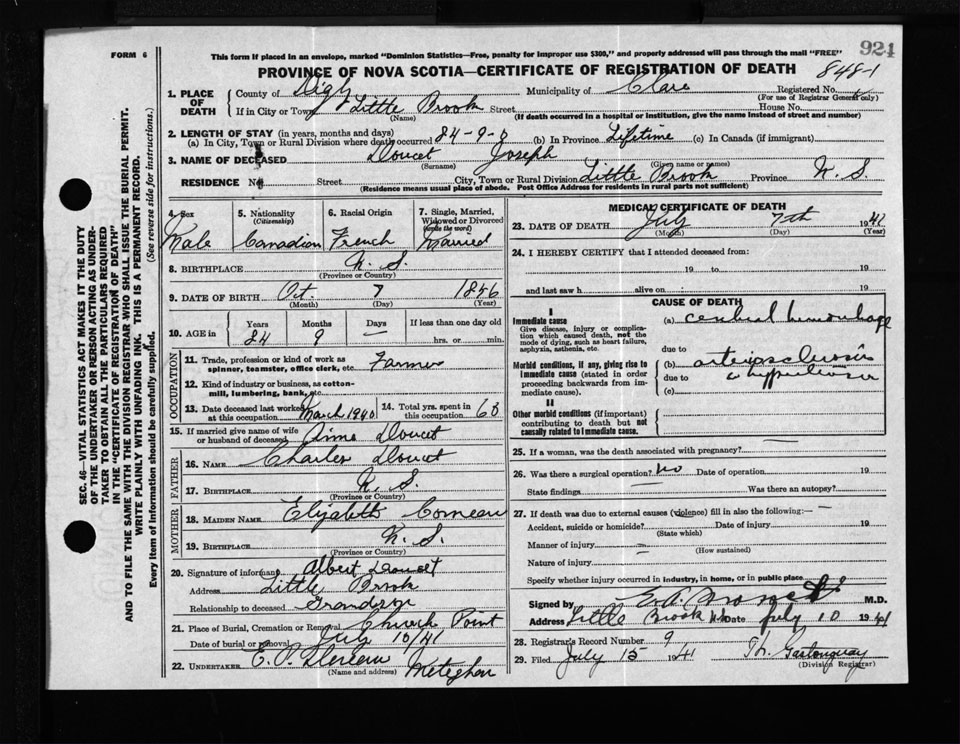 924
FORM 6
This form if placed in an envelope, marked "Dominion Statistics—Free, penalty for improper use $300," and properly addressed will pass through the mail "FREE"
PROVINCE OF NOVA SCOTIA—CERTIFICATE OF REGISTRATION OF DEATH
848-1
SEC. 46- VITAL STATISTICS ACT MAKES IT THE DUTY
OF THE UNDERTAKER OR PERSON ACTING AS UNDER-
TAKER TO OBTAIN ALL THE PARTICULARS REQUIRED
IN THE "CERTIFICATE OF REGISTRATION OF DEATH"
AND TO FILE THE SAME WITH THE DIVISION REGISTRAR WHO SHALL ISSUE THE BURIAL PERMIT.
WRITE PLAINLY WITH UNFADING INK. THIS IS A PERMANENT RECORD.
Every item of information should be carefully supplied. (See reverse side for instructions.)
1. PLACE OF DEATH
County of Digby Municipality of Clare Registered No.
(For use of Registrar General only)
If in City or Town Little Brook Street House No.
(Name) (If death occurred in a hospital or institution, give the name instead of street and number)
2. LENGTH OF STAY (in years, months and days)
(a) In City, Town or Rural Division where death occurred 84-9-0 (b) In Province Lifetime (c) In Canada (if immigrant)
3. NAME OF DECEASED Doucet Joseph
(Surname) (Given name or names)
RESIDENCE No. Street City, Town or Rural Division Little Brook Province N. S
(Residence means usual place of abode. Post Office Address for residents in rural parts not sufficient)
4. Sex
Male
5. Nationality
(Citizenship)
Canadian
6. Racial Origin
French
7. Single, Married,
Widowed or Divorced
(write the word)
Married
8. BIRTHPLACE N. S.
(Province or Country)
9. DATE OF BIRTH Oct. 7 1856
(Month) (Day) (Year)
10. AGE in
Years Months Days If less than one day old
84 9 — hrs. or min.
OCCUPATION
11. Trade, profession or kind of work as
spinner, teamster, office clerk, etc. Farmer
12. Kind of industry or business, as cotton-
mill, lumbering, bank, etc.
13. Date deceased last worked
at this occupation March 1940
14. Total yrs. spent in
this occupation 60
15. If married give name of wife
or husband of deceased Doucet
FATHER
16. NAME Charles Doucet
17. BIRTHPLACE N. S.
(Province or Country)
MOTHER
18. MAIDEN NAME Elizabeth Comeau
19. BIRTHPLACE N. S.
(Province or Country)
20. Signature of informant Albert Doucet
Address Little Brook
Relationship to deceased Grandson
21. Place of Burial, Cremation or Removal Church Point
Date of burial or removal July 10/41
22. UNDERTAKER Meteghan
(Name and address)
MEDICAL CERTIFICATE OF DEATH
23. DATE OF DEATH July 7th 1941
(Month) (Day) (Year)
24. I HEREBY CERTIFY that I attended deceased from:
19 to 19
and last saw h alive on 19
CAUSE OF DEATH
I
Immediate cause
Give disease, injury or complica-
tion which caused death, not the
mode of dying, such as heart failure,
asphyxia, asthenia, etc.
(a) cerebral hemorrhage
due to
Morbid conditions, if any, giving rise to
immediate cause (stated in order
proceeding backwards from im-
mediate cause).
(b) arteriosclerosis
due to
(c)
II
Other morbid conditions (if important)
contributing to death but not
causally related to immediate cause.
25. If a woman, was the death associated with pregnancy? —
26. Was there a surgical operation? no Date of operation 19
State findings Was there an autopsy?
27. If death was due to external causes (violence) fill in also the following: —
Accident, suicide or homicide? Date of injury 19
(State which)
Manner of injury
(How sustained)
Nature of injury
Specify whether injury occurred in industry, in home, or in public place
Signed by M.D.
Address Little Brook N.S. Date July 10 1941
28. Registrar's Record Number 9
29. Filed July 15 1941
(Division Registrar)